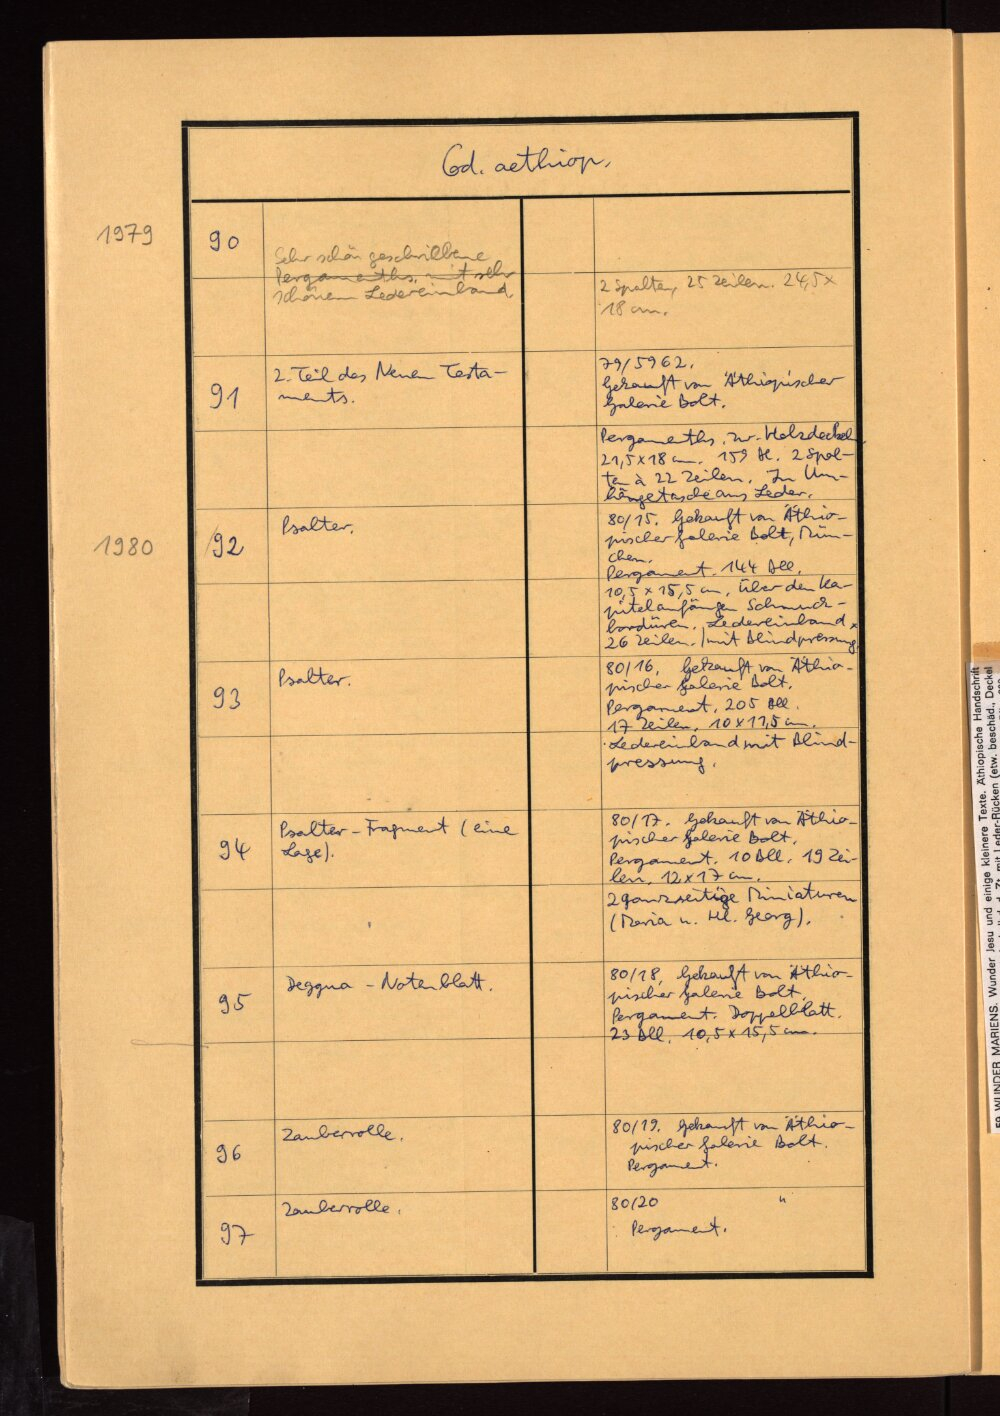 Cod. aethiop.
1979
90
Sehr schön geschriebene
Pergamenths. mit sehr
schönem Ledereinband.
2 Spalten, 25 Zeilen. 24,5x
18 cm.
91
2. Teil des Neuen Testa-
ments.
79/5962.
Gekauft von Äthiopischer
Galerie Bolt.
Pergamenths. zw. Holzdeckeln
21,5x18 cm. 159 Bl. 2 Spal-
ten à 22 Zeilen. In Um-
hängetasche aus Leder.
1980
92
Psalter.
80/15. Gekauft von Äthio-
pischer Galerie Bolt, Mün-
chen.
Pergament. 144 Bll.
10,5 x 15,5 cm. Über den Ka-
pitelanfängen Schmuck-
bordüren. Ledereinband x
26 Zeilen. / mit Blindpressung
93
Psalter.
80/16. Gekauft von Äthio-
pischer Galerie Bolt.
Pergament, 205 Bll.
17 Zeilen, 10x11,5 cm.
Ledereinband mit Blind-
pressung.
94
Psalter - Fragment (eine
Lage).
80/17. Gekauft von Äthio-
pischer Galerie Bolt.
Pergament. 10 Bll. 19 Zei-
len. 12x17 cm.
2 ganzseitige Miniaturen
(Maria u. Hl. Georg).
95
Deggua - Notenblatt.
80/18. Gekauft von Äthio-
pischer Galerie Bolt.
Pergament. Doppelblatt.
23 Bll. 10,5 x 15,5 cm.
96
Zauberrolle.
80/19. Gekauft von Äthio-
pischer Galerie Bolt.
Pergament.
97
Zauberrolle.
80/20 "
Pergament.
59 WUNDER MARIENS. Wunder Jesu und einige kleinere Texte. Äthiopische Handschrift
mit Leder-Rücken (etw. beschäd., Deckel